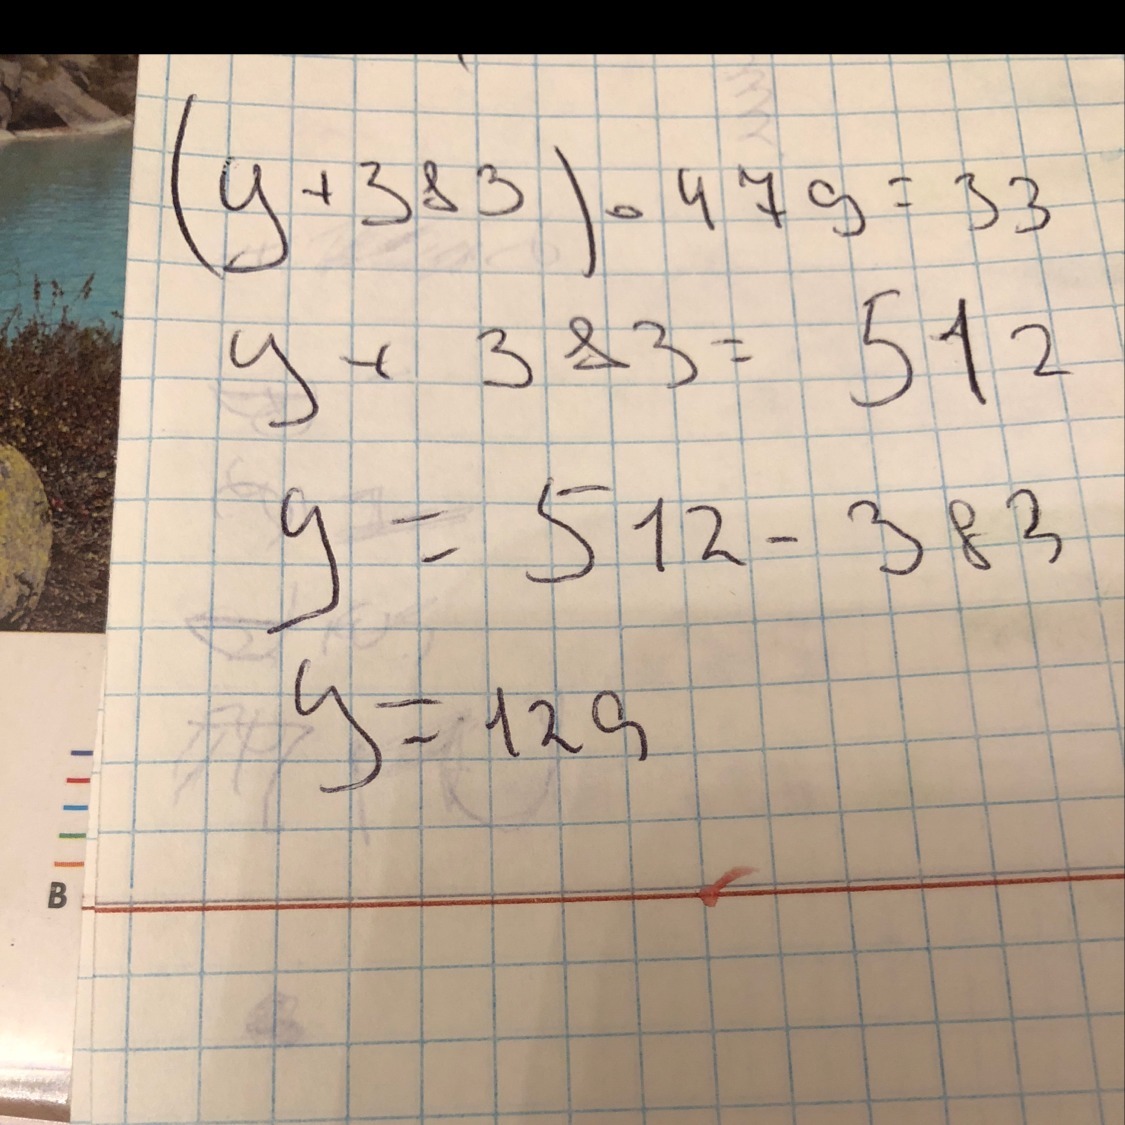 (y+383)•479=33
y+383=512
y=512-383
y=129
B